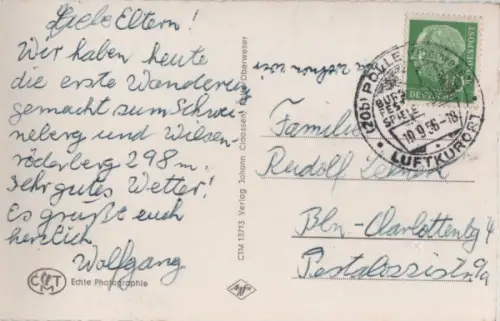 Liebe Eltern!
Wir haben heute
die erste Wanderung
gemacht zum Schwei-
neberg und Wilsen-
röderberg 298 m.
Sehr gutes Wetter!
Es grüßt euch
herzlich
Wolfgang
CTM
Echte Photographie
CTM 13713 Verlag Johann Claassen, Oberweser
Agfa
wohnen wir
(20b) POLLE
BURG
SPIELE
18.9.56-18
LUFTKURORT
DEUTSCHE BUNDESPOST
Familie
Rudolf
Bln-Charlottenbg 4
Pestalozzistr. 9a